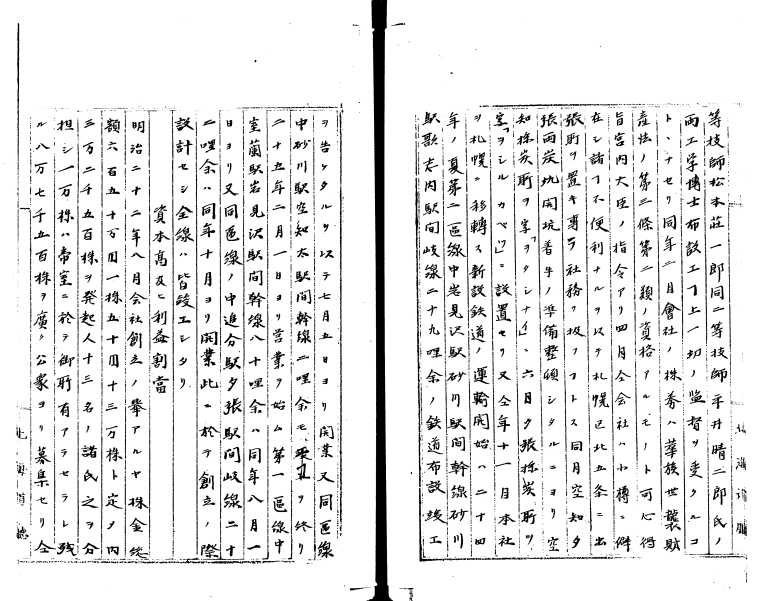 等技師松本荘一郎同二等技師平井晴二郎氏ノ
両工学博士布設工事上一切ノ監督ヲ受クルコ
トヽナセリ同年二月會社ノ株券ハ華族世襲財
産法ノ第三條第二類ノ資格アルモノト可心得
旨宮内大臣ノ指令アリ四月仝会社ハ小樽ニ僻
在シ諸事不便利ナルヲ以テ札幌区北五条ニ出
張所ヲ置キ専ラ社務ヲ扱フコトヽス同月空知夕
張両炭坑開坑着手ノ準備整頓シタルニヨリ空
知採炭所ヲ字「ヲタシナイ」ニ六月夕張採炭所ヲ
字「ヲシルカペツ」ニ設置セリ又仝年十一月本社
ヲ札幌ニ移轉ス新設鉄道ノ運輸開始ハ二十四
年ノ夏第二區線中岩見沢駅砂川駅間幹線砂川
駅歌志内駅間岐線二十九哩余ノ鉄道布設竣工
ヲ告ケタルヲ以テ七月五日ヨリ開業又同區線
中砂川駅空知太駅間幹線二哩余モ竣工ヲ終リ
二十五年二月一日ヨリ営業ヲ始ム第一區線中
室蘭駅岩見沢駅間幹線八十哩余ハ同年八月一
日ヨリ又同區線ノ中追分駅夕張駅間岐線二十
二哩余ハ同年十月ヨリ開業此ニ於テ創立ノ際
設計セシ全線ハ皆竣工シタリ
資本高及ヒ利益割當
明治二十二年八月会社創立ノ挙アルヤ株金総
額六百五十万円一株五十円十三万株ト定メ内
三万二千五百株ヲ発起人十三名ノ諸氏之ヲ分
担シ一万株ハ帝室ニ於テ御所有アラセラレ残
ル八万七千五百株ヲ廣ク公衆ヨリ募集セリ仝
北海道廳